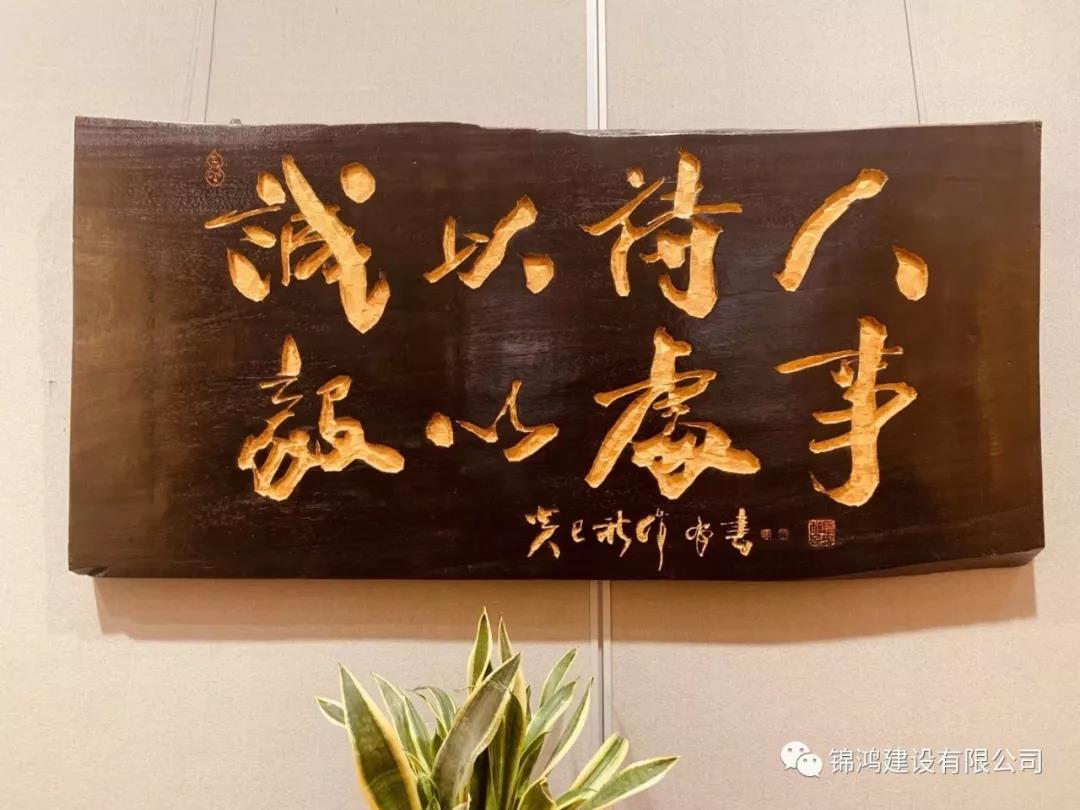 誠以待人
毅以處事
癸巳秋 书
锦鸿建设有限公司